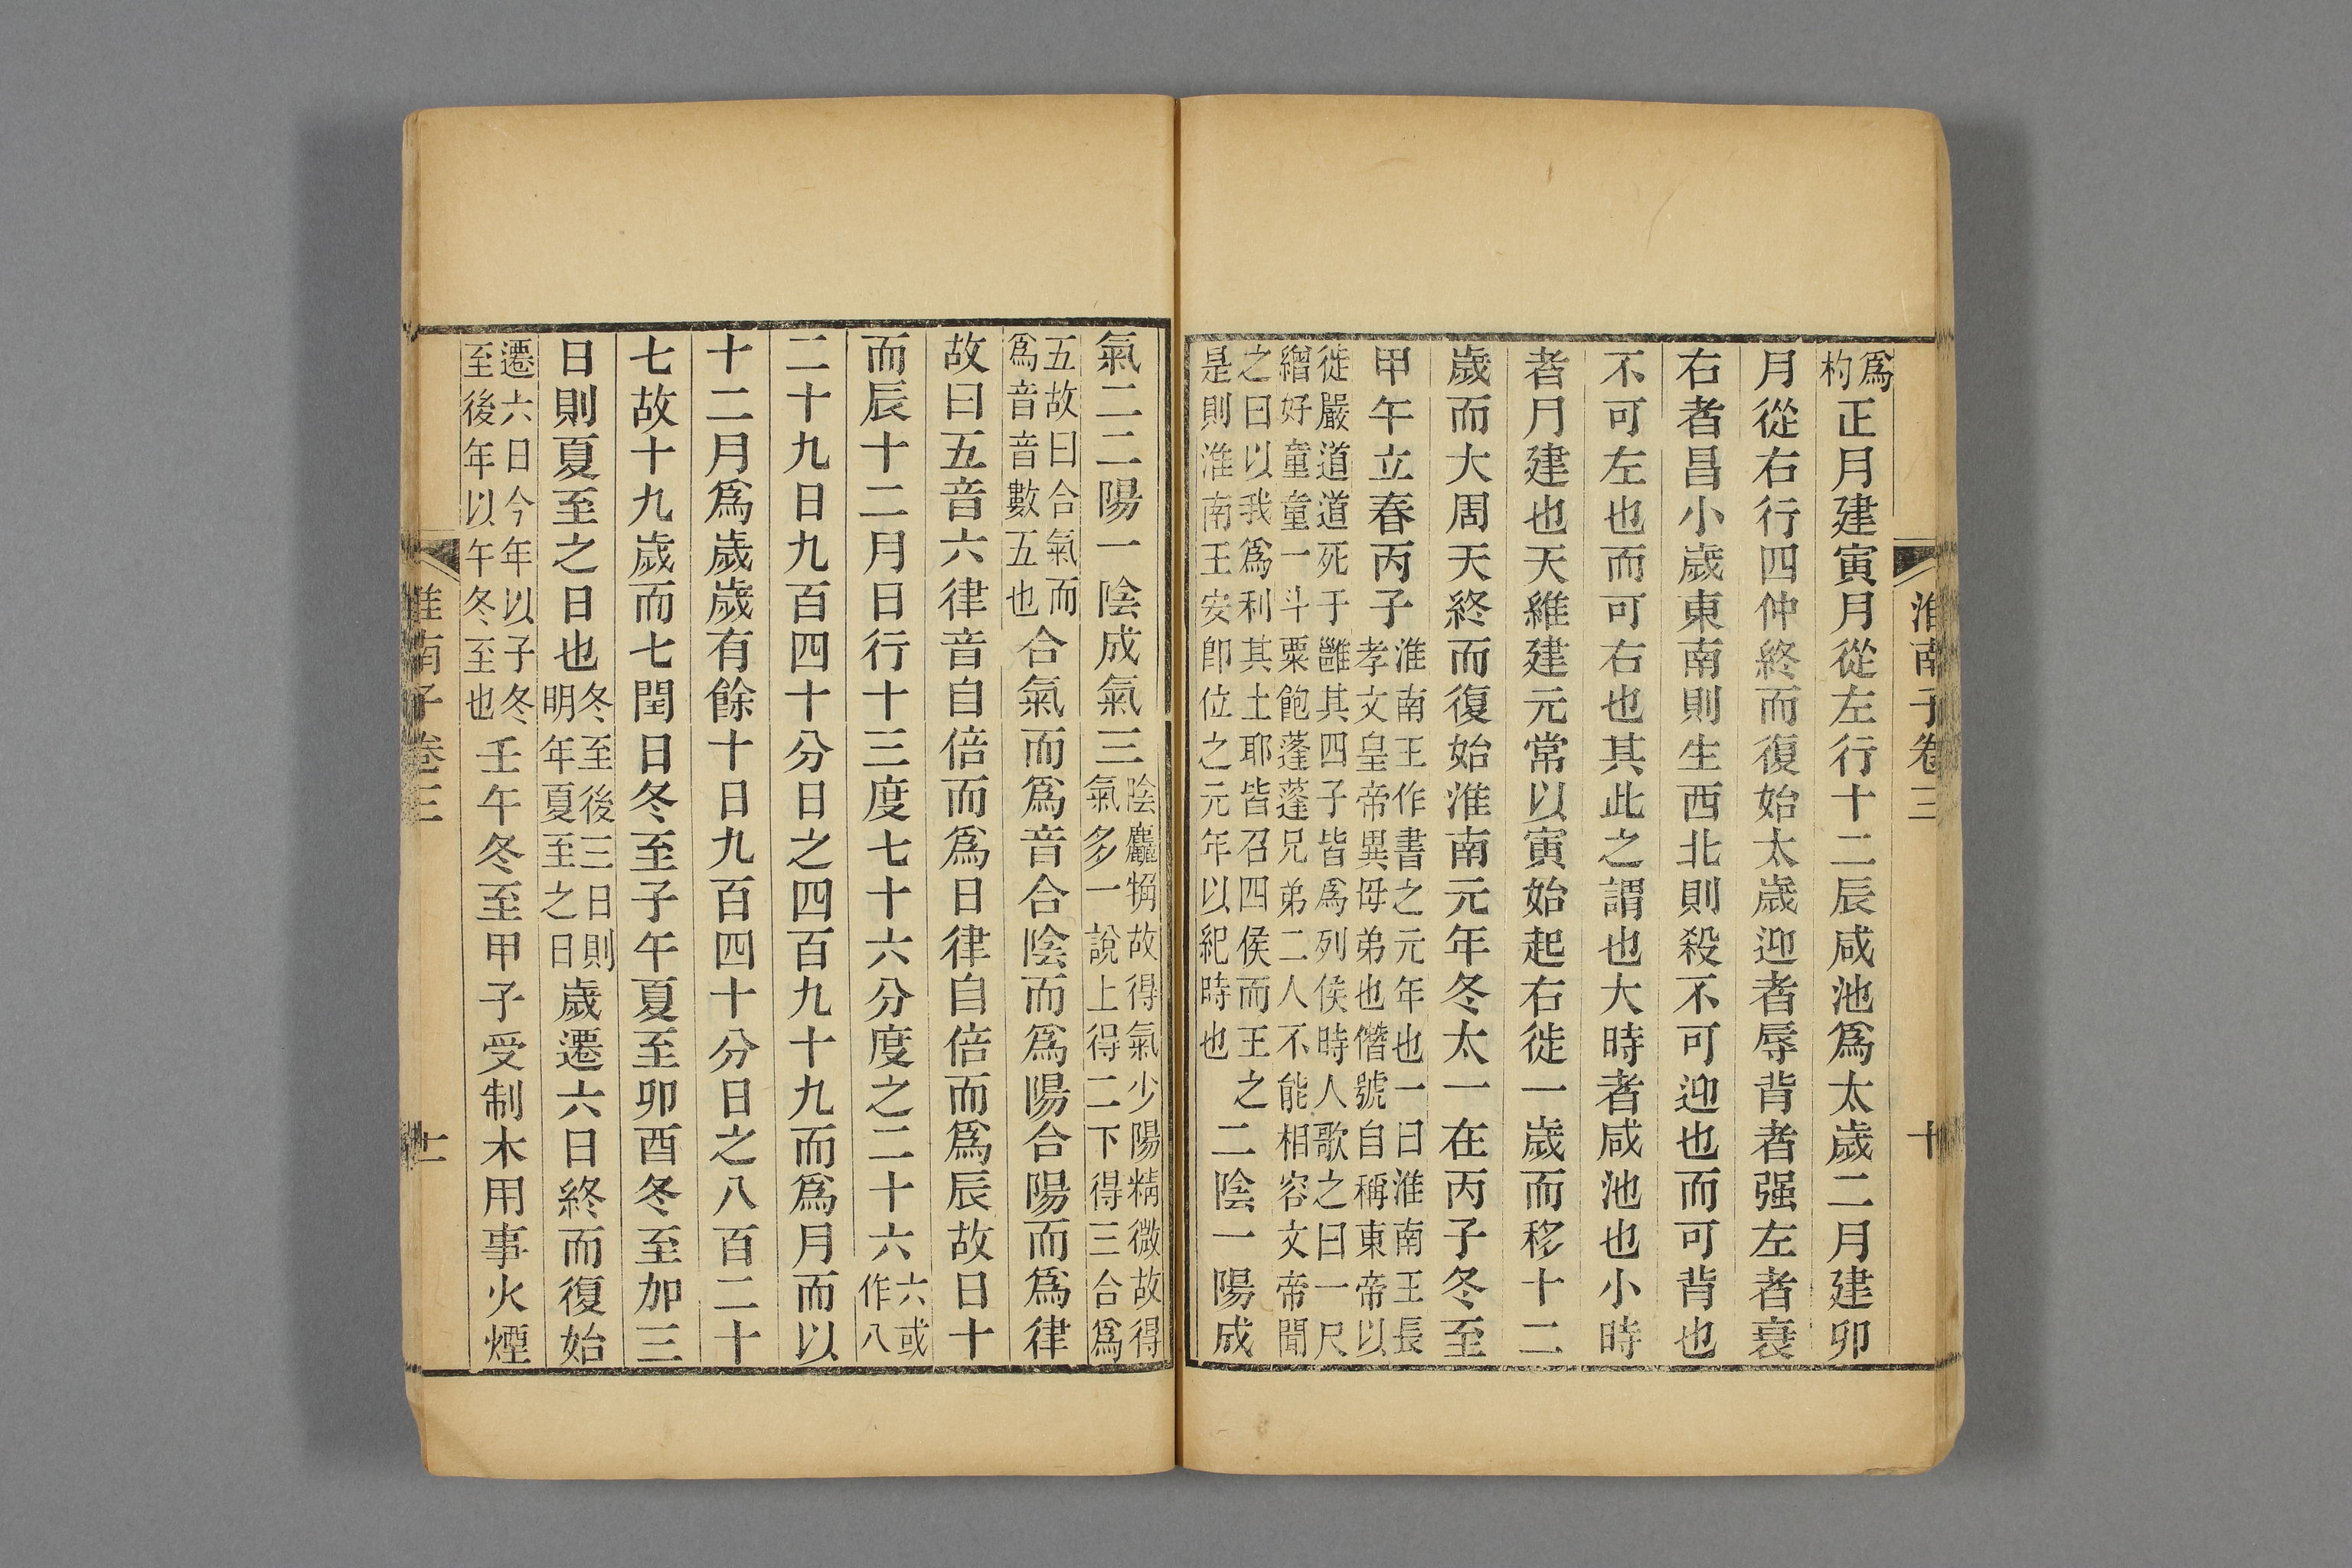 淮南子卷三 十
爲杓正月建寅月從左行十二辰咸池爲太歲二月建卯
月從右行四仲終而復始太歲迎者辱背者强左者衰
右者昌小歲東南則生西北則殺不可迎也而可背也
不可左也而可右也其此之謂也大時者咸池也小時
者月建也天維建元常以寅始起右徙一歲而移十二
歲而大周天終而復始淮南元年冬太一在丙子冬至
甲午立春丙子淮南王作書之元年也一曰淮南王長孝文皇帝異母弟也僭號自稱東帝以
徙嚴道道死于雝其四子皆爲列侯時人歌之曰一尺繒好童童一斗粟飽蓬蓬兄弟二人不能相容文帝聞
之曰以我爲利其土耶皆召四侯而王之是則淮南王安卽位之元年以紀時也二陰一陽成
氣二二陽一陰成氣三陰麤觕故得氣少陽精微故得氣多一說上得二下得三合爲
五故曰合氣而爲音音數五也合氣而爲音合陰而爲陽合陽而爲律
故曰五音六律音自倍而爲日律自倍而爲辰故日十
而辰十二月日行十三度七十六分度之二十六六或作八
二十九日九百四十分日之四百九十九而爲月而以
十二月爲歲歲有餘十日九百四十分日之八百二十
七故十九歲而七閏日冬至子午夏至卯酉冬至加三
日則夏至之日也冬至後三日則明年夏至之日歲遷六日終而復始
遷六日今年以子冬至後年以午冬至也壬午冬至甲子受制木用事火煙
淮南子卷三 十一